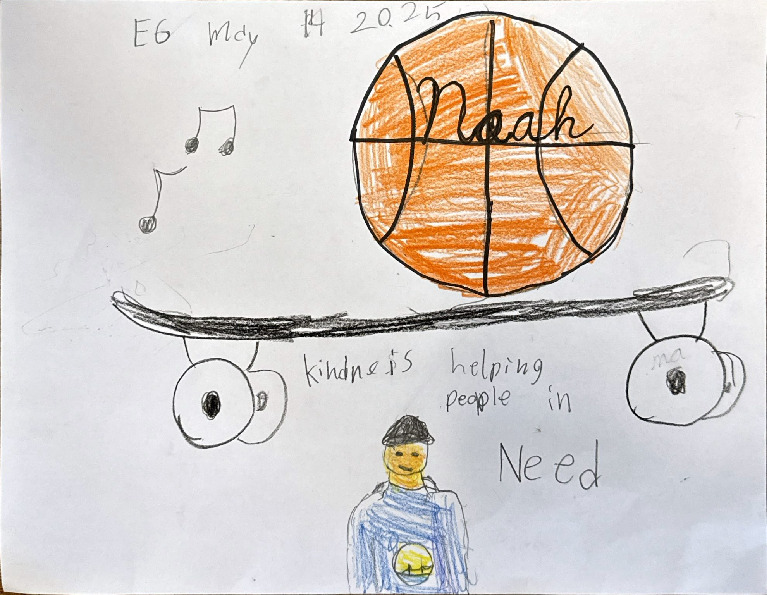 E6 May 14 2025
Noah
kindneis helping
people in
Need
ma